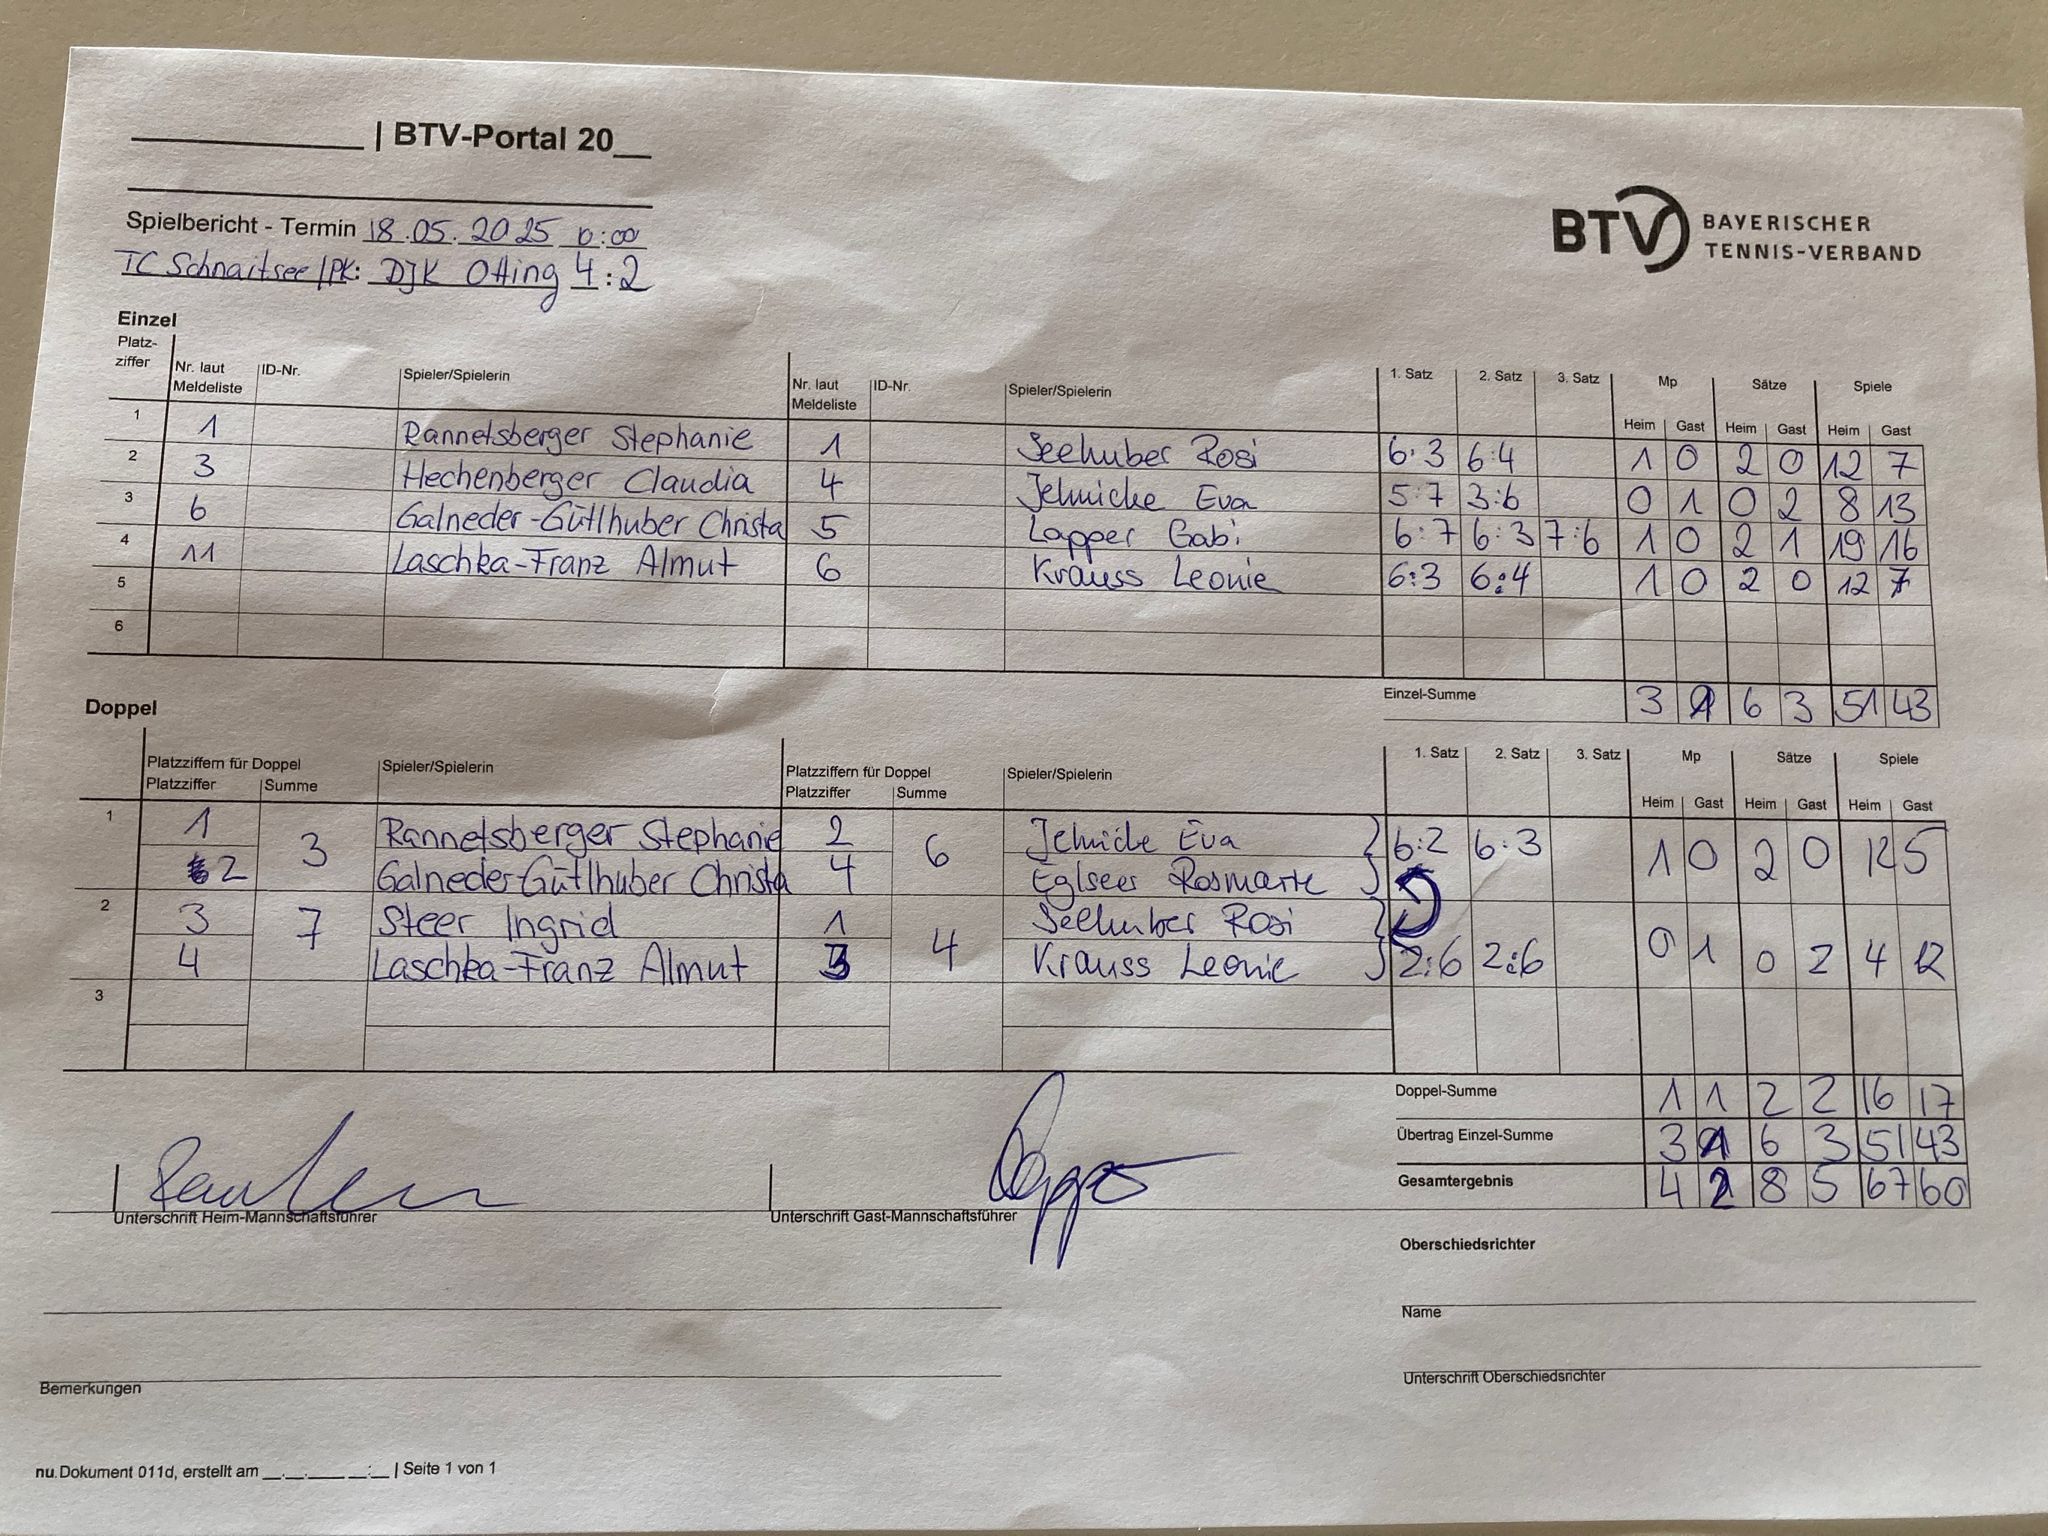 | BTV-Portal 20__
Spielbericht - Termin 18.05.2025 10:00
TC Schnaitsee/PK: DJK Otting 4:2
BTV BAYERISCHER TENNIS-VERBAND
Einzel
Platz-ziffer Nr. laut Meldeliste ID-Nr. Spieler/Spielerin Nr. laut Meldeliste ID-Nr. Spieler/Spielerin 1. Satz 2. Satz 3. Satz Mp Sätze Spiele
Heim Gast Heim Gast Heim Gast
1 1 Rannetsberger Stephanie 1 Seehuber Rosi 6:3 6:4 1 0 2 0 12 7
2 3 Hechenberger Claudia 4 Jelnicke Eva 5:7 3:6 0 1 0 2 8 13
3 6 Galneder-Gütlhuber Christa 5 Lapper Gabi 6:7 6:3 7:6 1 0 2 1 19 16
4 11 Laschka-Franz Almut 6 Krauss Leonie 6:3 6:4 1 0 2 0 12 7
5
6
Einzel-Summe 3 1 6 3 51 43
Doppel
Platzziffern für Doppel Spieler/Spielerin Platzziffern für Doppel Spieler/Spielerin 1. Satz 2. Satz 3. Satz Mp Sätze Spiele
Platzziffer Summe Platzziffer Summe Heim Gast Heim Gast Heim Gast
1 1 3 Rannetsberger Stephanie 2 6 Jelnicke Eva 6:2 6:3 1 0 2 0 12 5
2 Galneder-Gütlhuber Christa 4 Eglseer Rosmarie
2 3 7 Steer Ingrid 1 4 Seehuber Rosi
4 Laschka-Franz Almut 3 Krauss Leonie 2:6 2:6 0 1 0 2 4 12
3
Doppel-Summe 1 1 2 2 16 17
Übertrag Einzel-Summe 3 1 6 3 51 43
Gesamtergebnis 4 2 8 5 67 60
Unterschrift Heim-Mannschaftsführer Unterschrift Gast-Mannschaftsführer
Oberschiedsrichter
Name
Unterschrift Oberschiedsrichter
Bemerkungen
nu.Dokument 011d, erstellt am __.__.____ __:__ | Seite 1 von 1